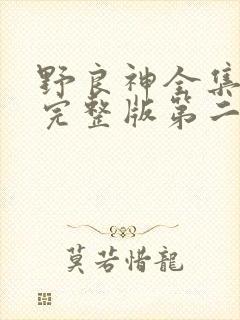 野良神全集
完整版第二
莫若惜龍